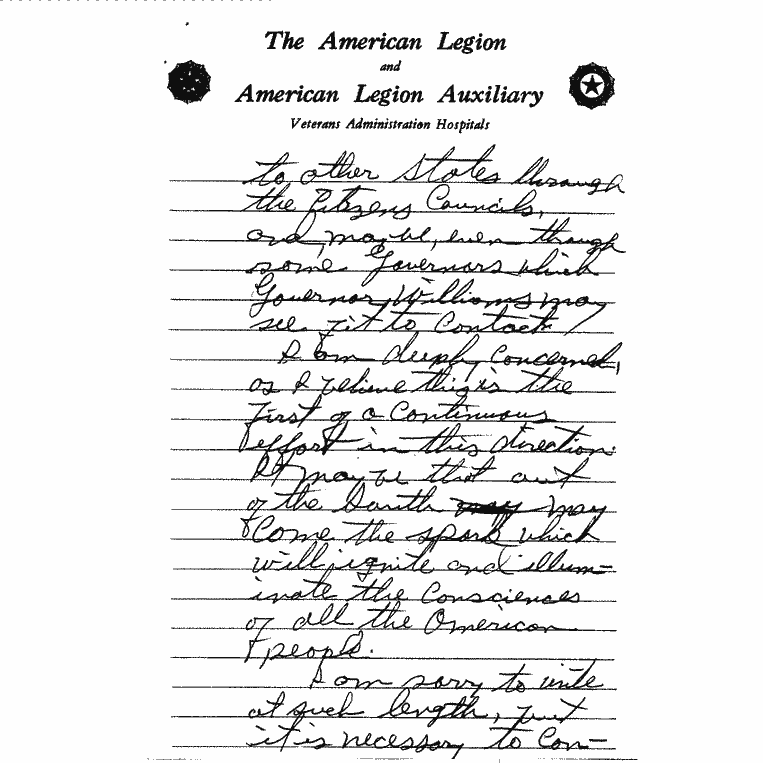 The American Legion
and
American Legion Auxiliary
Veterans Administration Hospitals
to other States through
the Citizens Councils,
and, maybe, even through
some Governors which
Governor Williams may
see fit to contact.
I am deeply concerned,
as I believe this is the
first of a continuous
effort in this direction.
It may be that out
of the South may may
come the spark which
will ignite and illum-
inate the consciences
of all the American
people.
I am sorry to write
at such length, but
it is necessary to con-